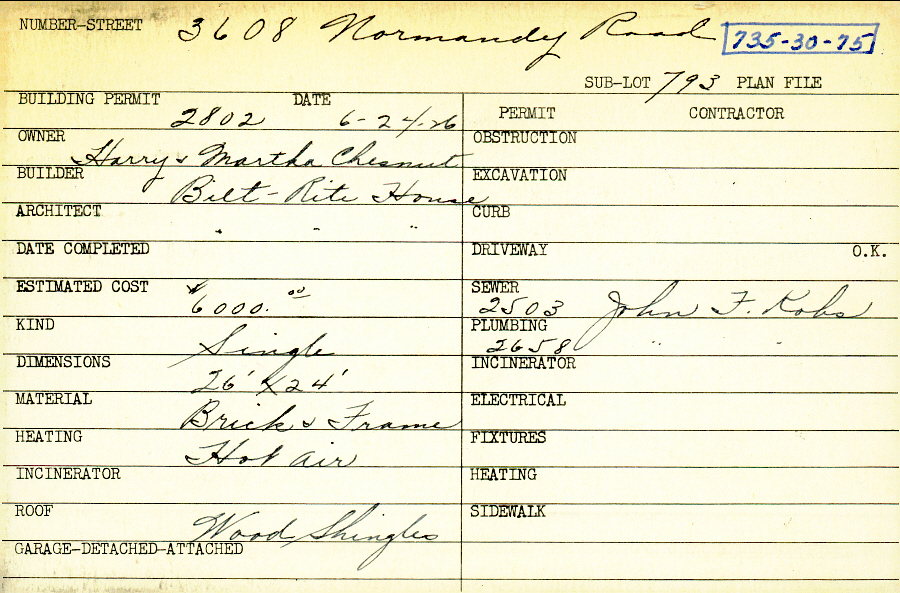 NUMBER-STREET 3608 Normandy Road 735-30-75
SUB-LOT 793 PLAN FILE
BUILDING PERMIT 2802 DATE 6-24-26
PERMIT CONTRACTOR
OWNER Harry & Martha Chesnut
OBSTRUCTION
BUILDER Bilt-Rite House
EXCAVATION
ARCHITECT " " "
CURB
DATE COMPLETED
DRIVEWAY O.K.
ESTIMATED COST $6000.00
SEWER 2503 John F. Kobs
KIND Single
PLUMBING 2658 " "
DIMENSIONS 26' x 24'
INCINERATOR
MATERIAL Brick & Frame
ELECTRICAL
HEATING Hot air
FIXTURES
INCINERATOR
HEATING
ROOF Wood Shingles
SIDEWALK
GARAGE-DETACHED-ATTACHED